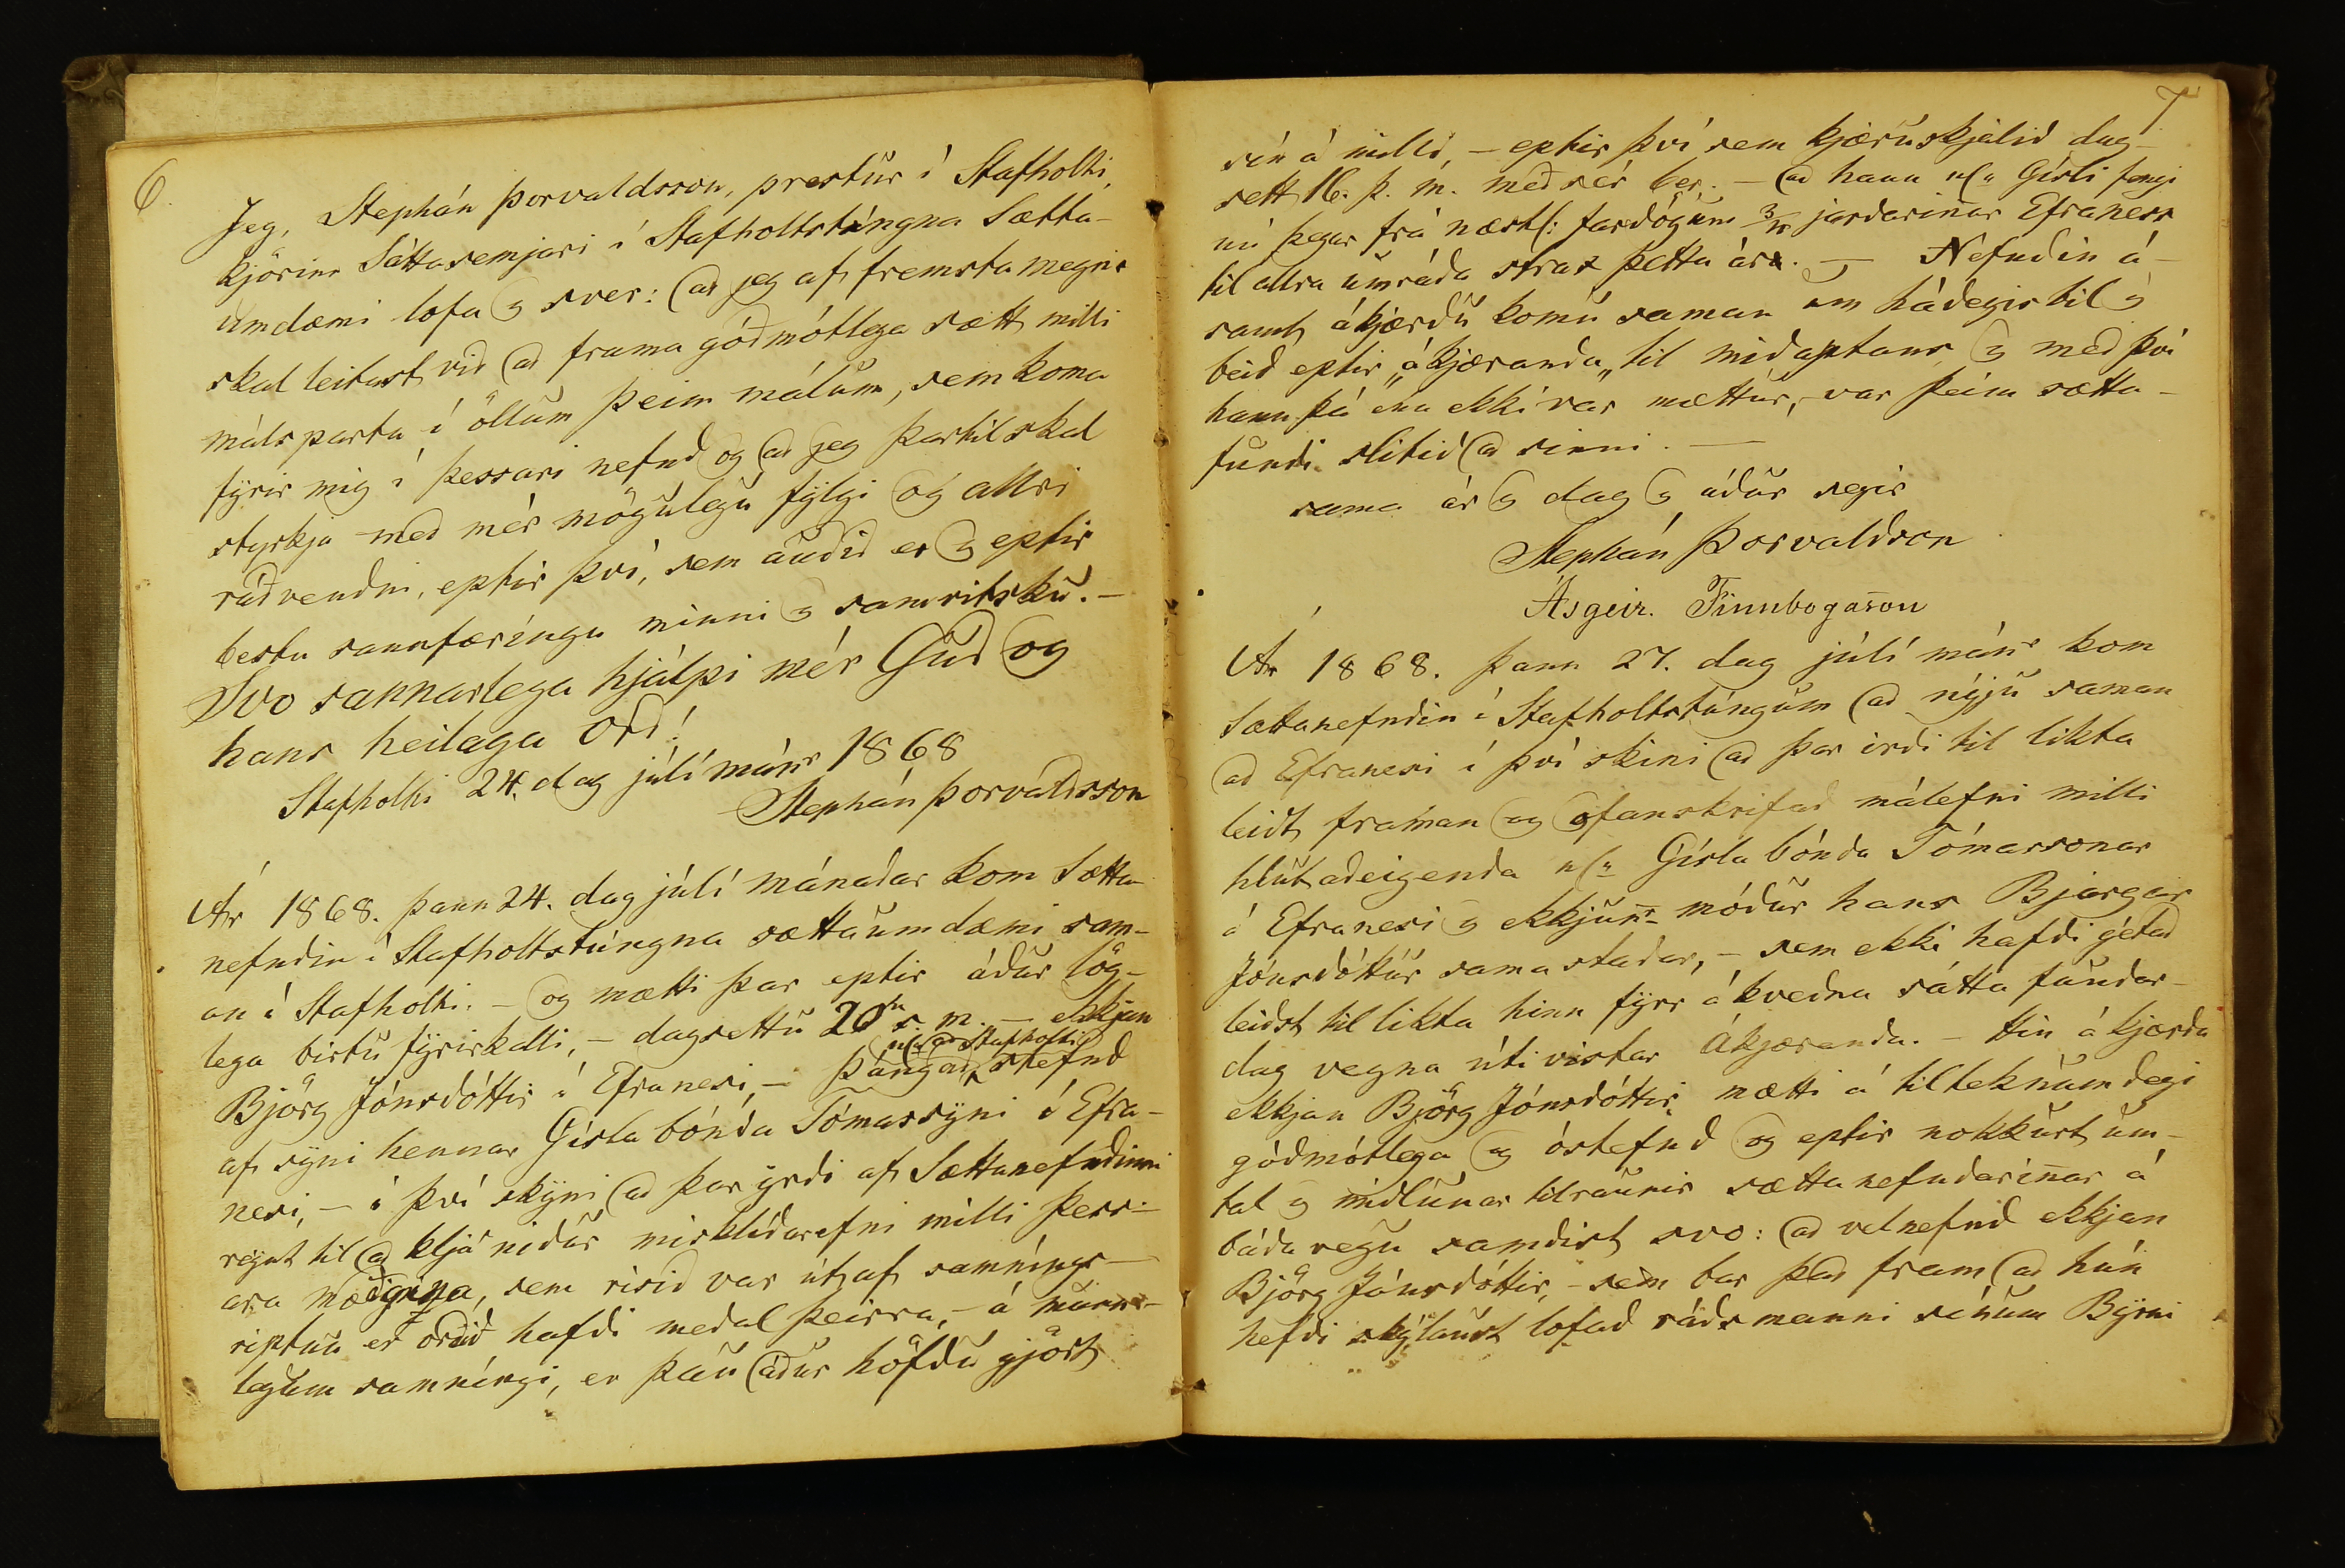 6.
Jeg, Stephán Þorvaldsson, prestur í Stafholti,
kjörinn Sáttasemjari í Stafholtstúngna Sætta-
umdæmi lofa og sver: að jeg af fremsta megni
skal leitast við að frama góðmótlega sætt milli
málsparta í öllum þeim málum, sem koma
fyrir mig í þessari nefnd og að jeg þartil skal
styrkja með mér mögulegu fylgi og allri
ráðvendni, eptir því, sem auðið er og eptir
bestu sannfæríngu minni og samvitsku. -
Svo sannarlega hjálpi mér Guð og
hans heilaga Orð!
Stafholti 24. dag júlí mánr 1868
Stephán Þorvaldsson
Ár 1868. þann 24. dag júlí mánaðar kom Sætta-
nefndin í Stafholtstúngna sættaumdæmi sam-
an í Stafholti. - og mætti þar eptir áður lög-
lega birtu fyrirkalli, - dagsettu 20ta s. m. - ekkjan
Björg Jónsdóttir á Efranesi, - þángað stefnd
n/l að Stafholti
af syni hennar Gísla bónda Tómassyni á Efra-
nesi, - í því skyni að þar yrði af Sættanefndinni
reynt til að kljá niður misklíðarefni milli þess-
ara mæðgina, sem risið var út af samníngs-
riptun er orðið hafði meðal þeirra, - á munn-
legum samníngi, er þau áður höfðu gjört
7
sín á milli, - eptir því sem kjæruskjalið dag-
sett 16. þ. m. með sér ber. - að hann n/l Gísli fengi
nú þegar frá næstl: fardögum jarðarinnar Efraness
til allra umráða strax þetta ár. - Nefndin á-
samt ákjærðu komu saman um hádegisbil og
beið eptir „ákjæranda„ til miðaptans og með því
hann þá enn ekki var mættur, - var þeim sætta-
fundi slitið að sinni. -
sama ár og dag og áður segir
Stephán Þorvaldson
Ásgeir. Finnbogason
Ár 1868. þann 27. dag júlí mánr kom
Sættanefndin í Stafholtstúngum að nýju saman
að Efranesi í því skini að þar irði til likta
leidt framan og ofanskrifað málefni milli
hlutaðeigenda n/l Gísla bónda Tómassonar
á Efranesi og ekkjunr móður hans Bjargar
Jónsdóttur sama staðar, - sem ekki hafði getað
leiðst til likta hinn fyrr ákveðna sátta fundar-
dag vegna útivistar Ákjæranda. - Hin ákjærða
ekkjan Björg Jónsdóttir mætti á tilteknum degi
góðmótlega og óstefnd og eptir nokkurt um-
tal og miðlunar tilraunir sættanefndarinnar á
báða vegu samdist svo: að velnefnd ekkjan
Björg Jónsdóttir, - sem bar það fram að hún
hefði skýlaust lofað ráðsmanni sínum Byrni